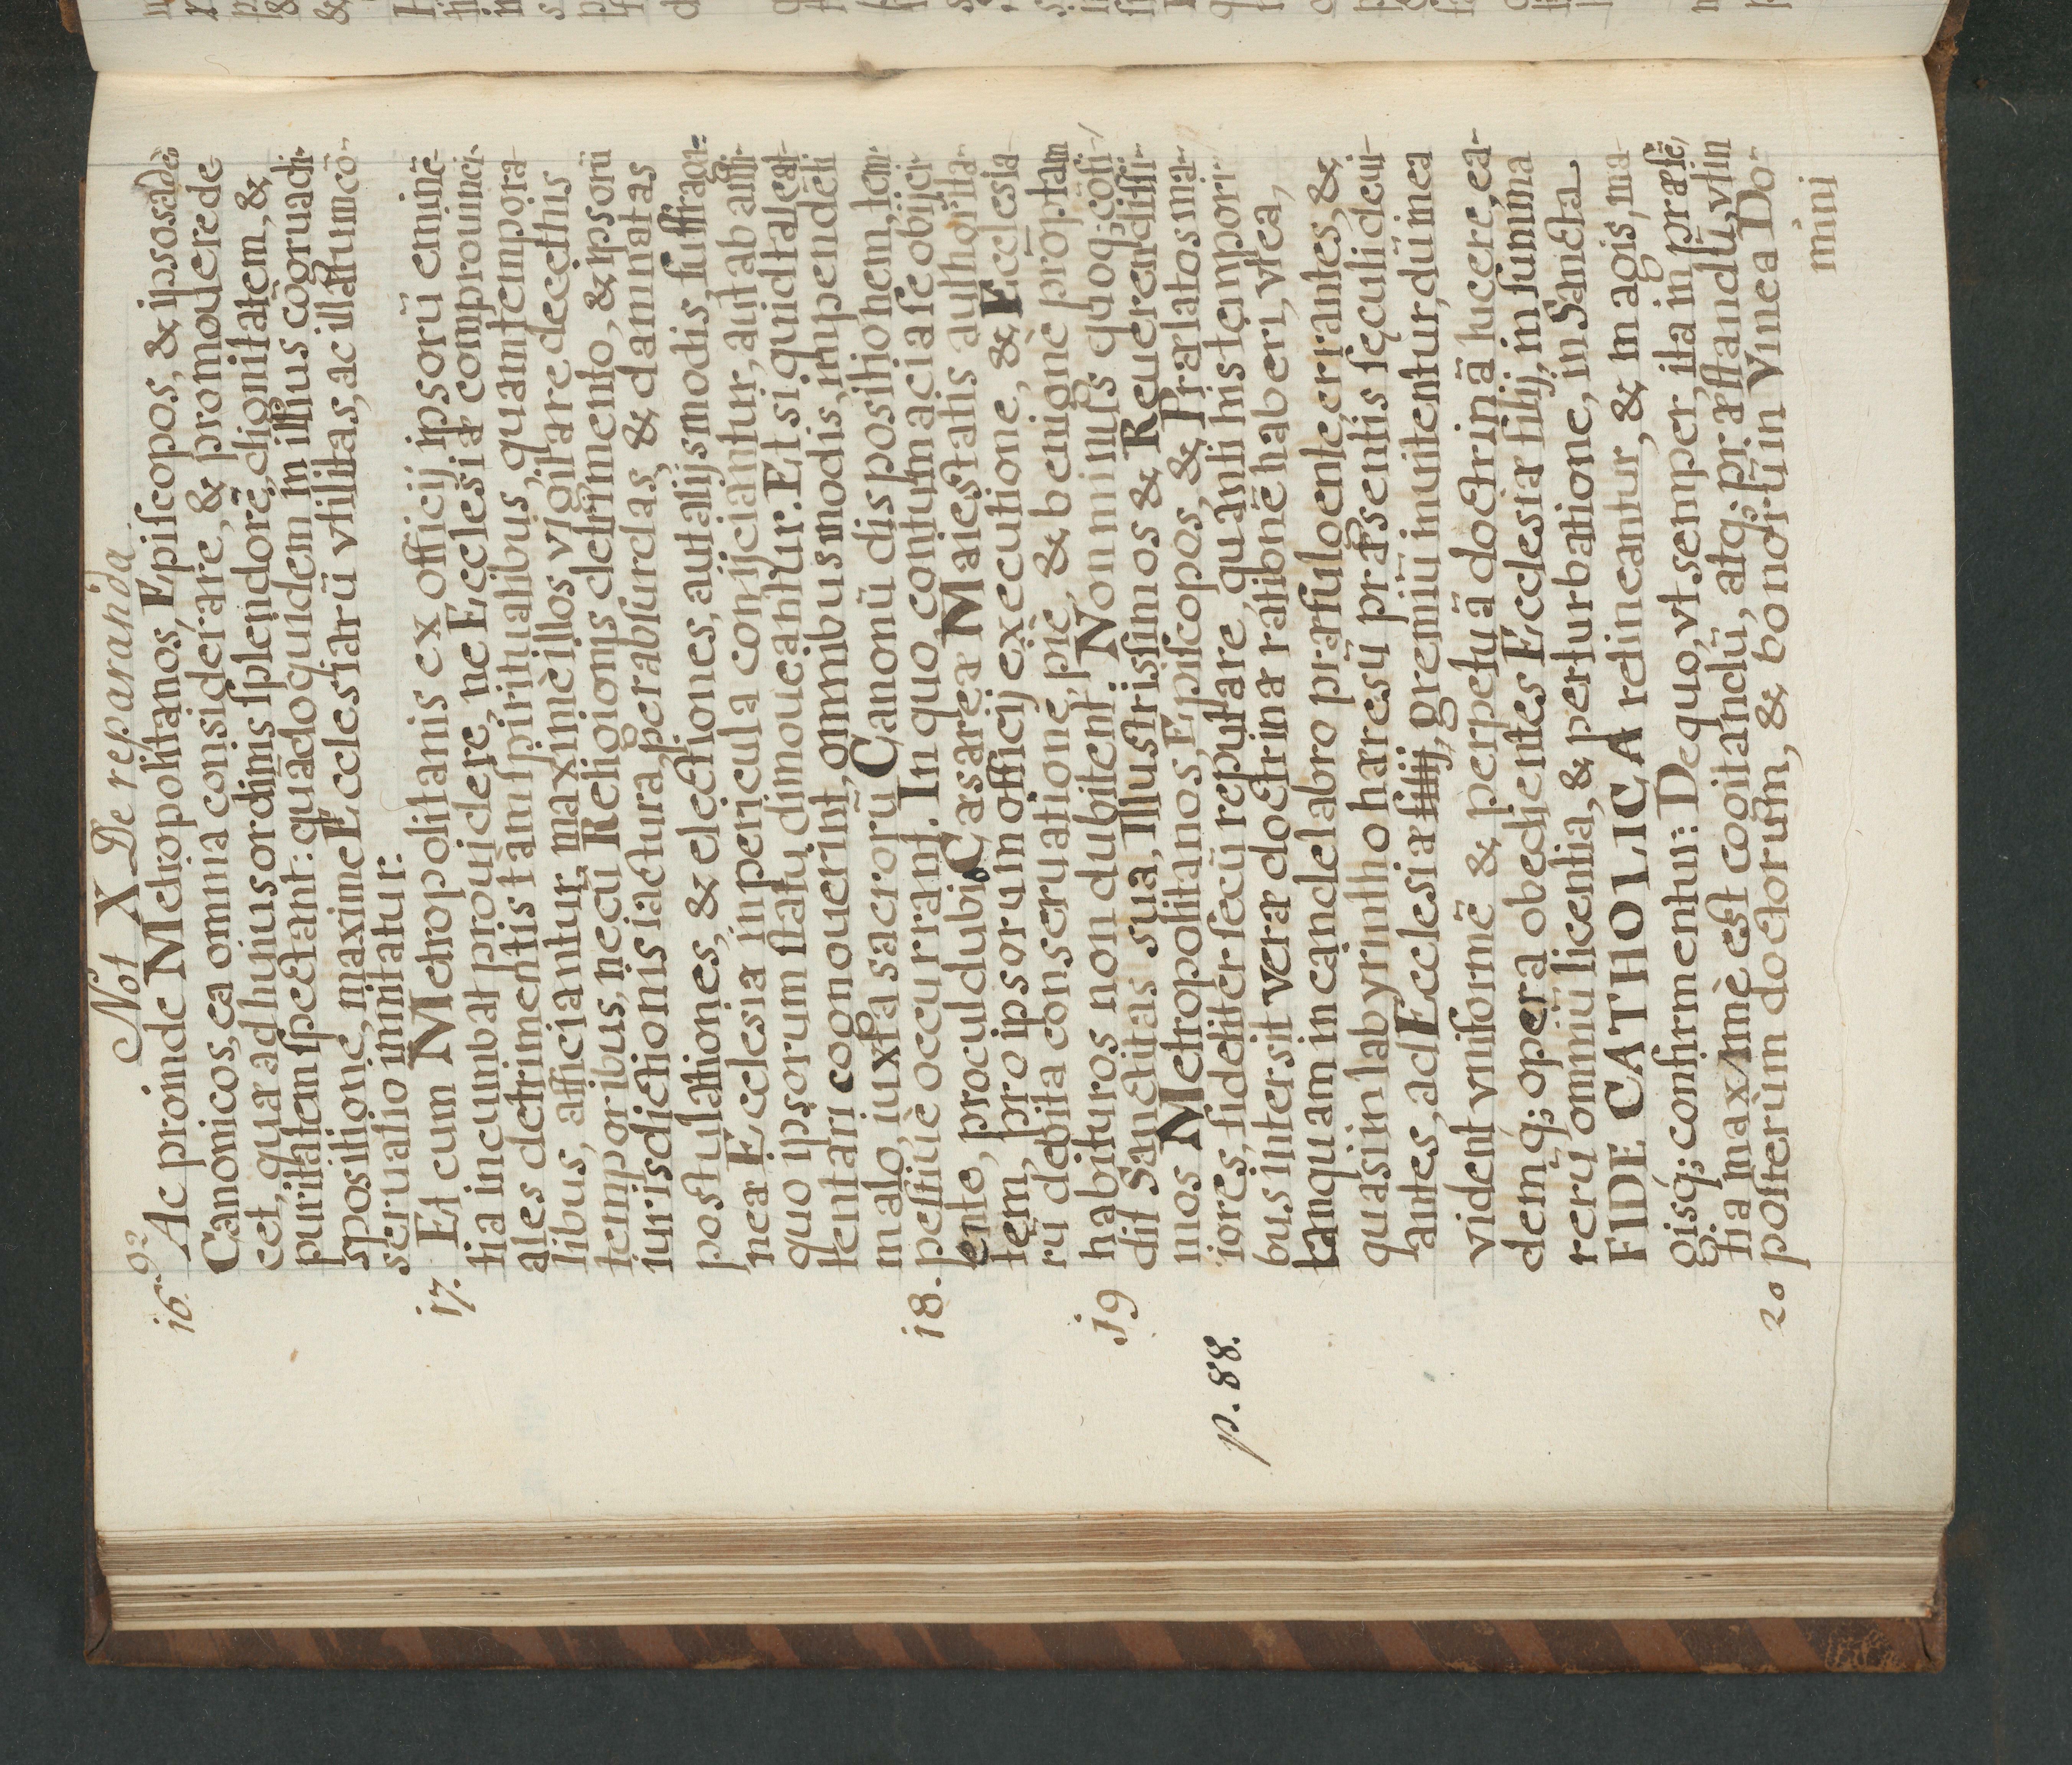 92
Not X De reparanda
16. Ac proinde Metropolitanos, Episcopos, & ipsos ad eos
Canonicos, ea omnia considerare, & promouere de-
cet, quæ ad huius ordinis splendorē, dignitatem, &
puritatem spectant: quādoquidem in illius cōgrua di-
spositione, maxime Ecclesiarū vtilitas, ac illarum cō-
seruatio innitatur.
17. Et cum Metropolitanis ex officij ipsorū eminē-
tia incumbat prouidere, ne Ecclesiæ comprouinci-
ales detrimentis tam spiritualibus, quam tempora-
libus, afficiantur, maximè illos vigitare decet his
temporibus, ne cū Religionis detrimento, & ipsorū
iurisdictionis iactura, per absurdas, & damnatas
postulationes, & electiones, aut alijs modis, suffraga-
neæ Ecclesiæ in pericula conijciantur, aut ab anti-
quo ipsorum statu dimoueantur. Et si quid tale at-
tentari cognouerint, omnibus modis, impendēti
malo, iuxta sacrorū Canonū dispositionem, tem-
18. pestiuè occurrant. In quo, contumacia se obijci-
ente, proculdubio Cæsareæ Maiestatis authorita-
tem, pro ipsorum officij executione, & Ecclesia-
rū debita conseruatione, piè, & benignè prōptam
19 habituros non dubitent. Non minus quoq; cōfi-
dit Sanctitas sua, Illustrissimos & Reuerendissi-
mos Metropolitanos, Episcopos, & Prælatos ma-
iores, fideliter secū reputare, quanti his tempori-
p. 88.
bus intersit veræ doctrinæ rationē haberi, vt ea,
tanquam in candelabro præfulgente, errantes, &
quasi in labyrintho hæresū præsentis sęculi deui-
antes, ad Ecclesiæ filij, gremiū inuitentur, dū in ea
vident vniformē & perpetuā doctrinā lucere, ea-
demq; opera obedientes Ecclesiæ filij, in summa
rerū omniū licentia, & perturbatione, in Sancta
FIDE CATHOLICA retineantur, & magis, ma-
gisq; confirmentur: De quo, vt semper, ita in præsē-
tia maximè est cogitandū, atq; præstandū, vt in
20 posterùm doctorum, & bonorū in Vinea Do-
mini